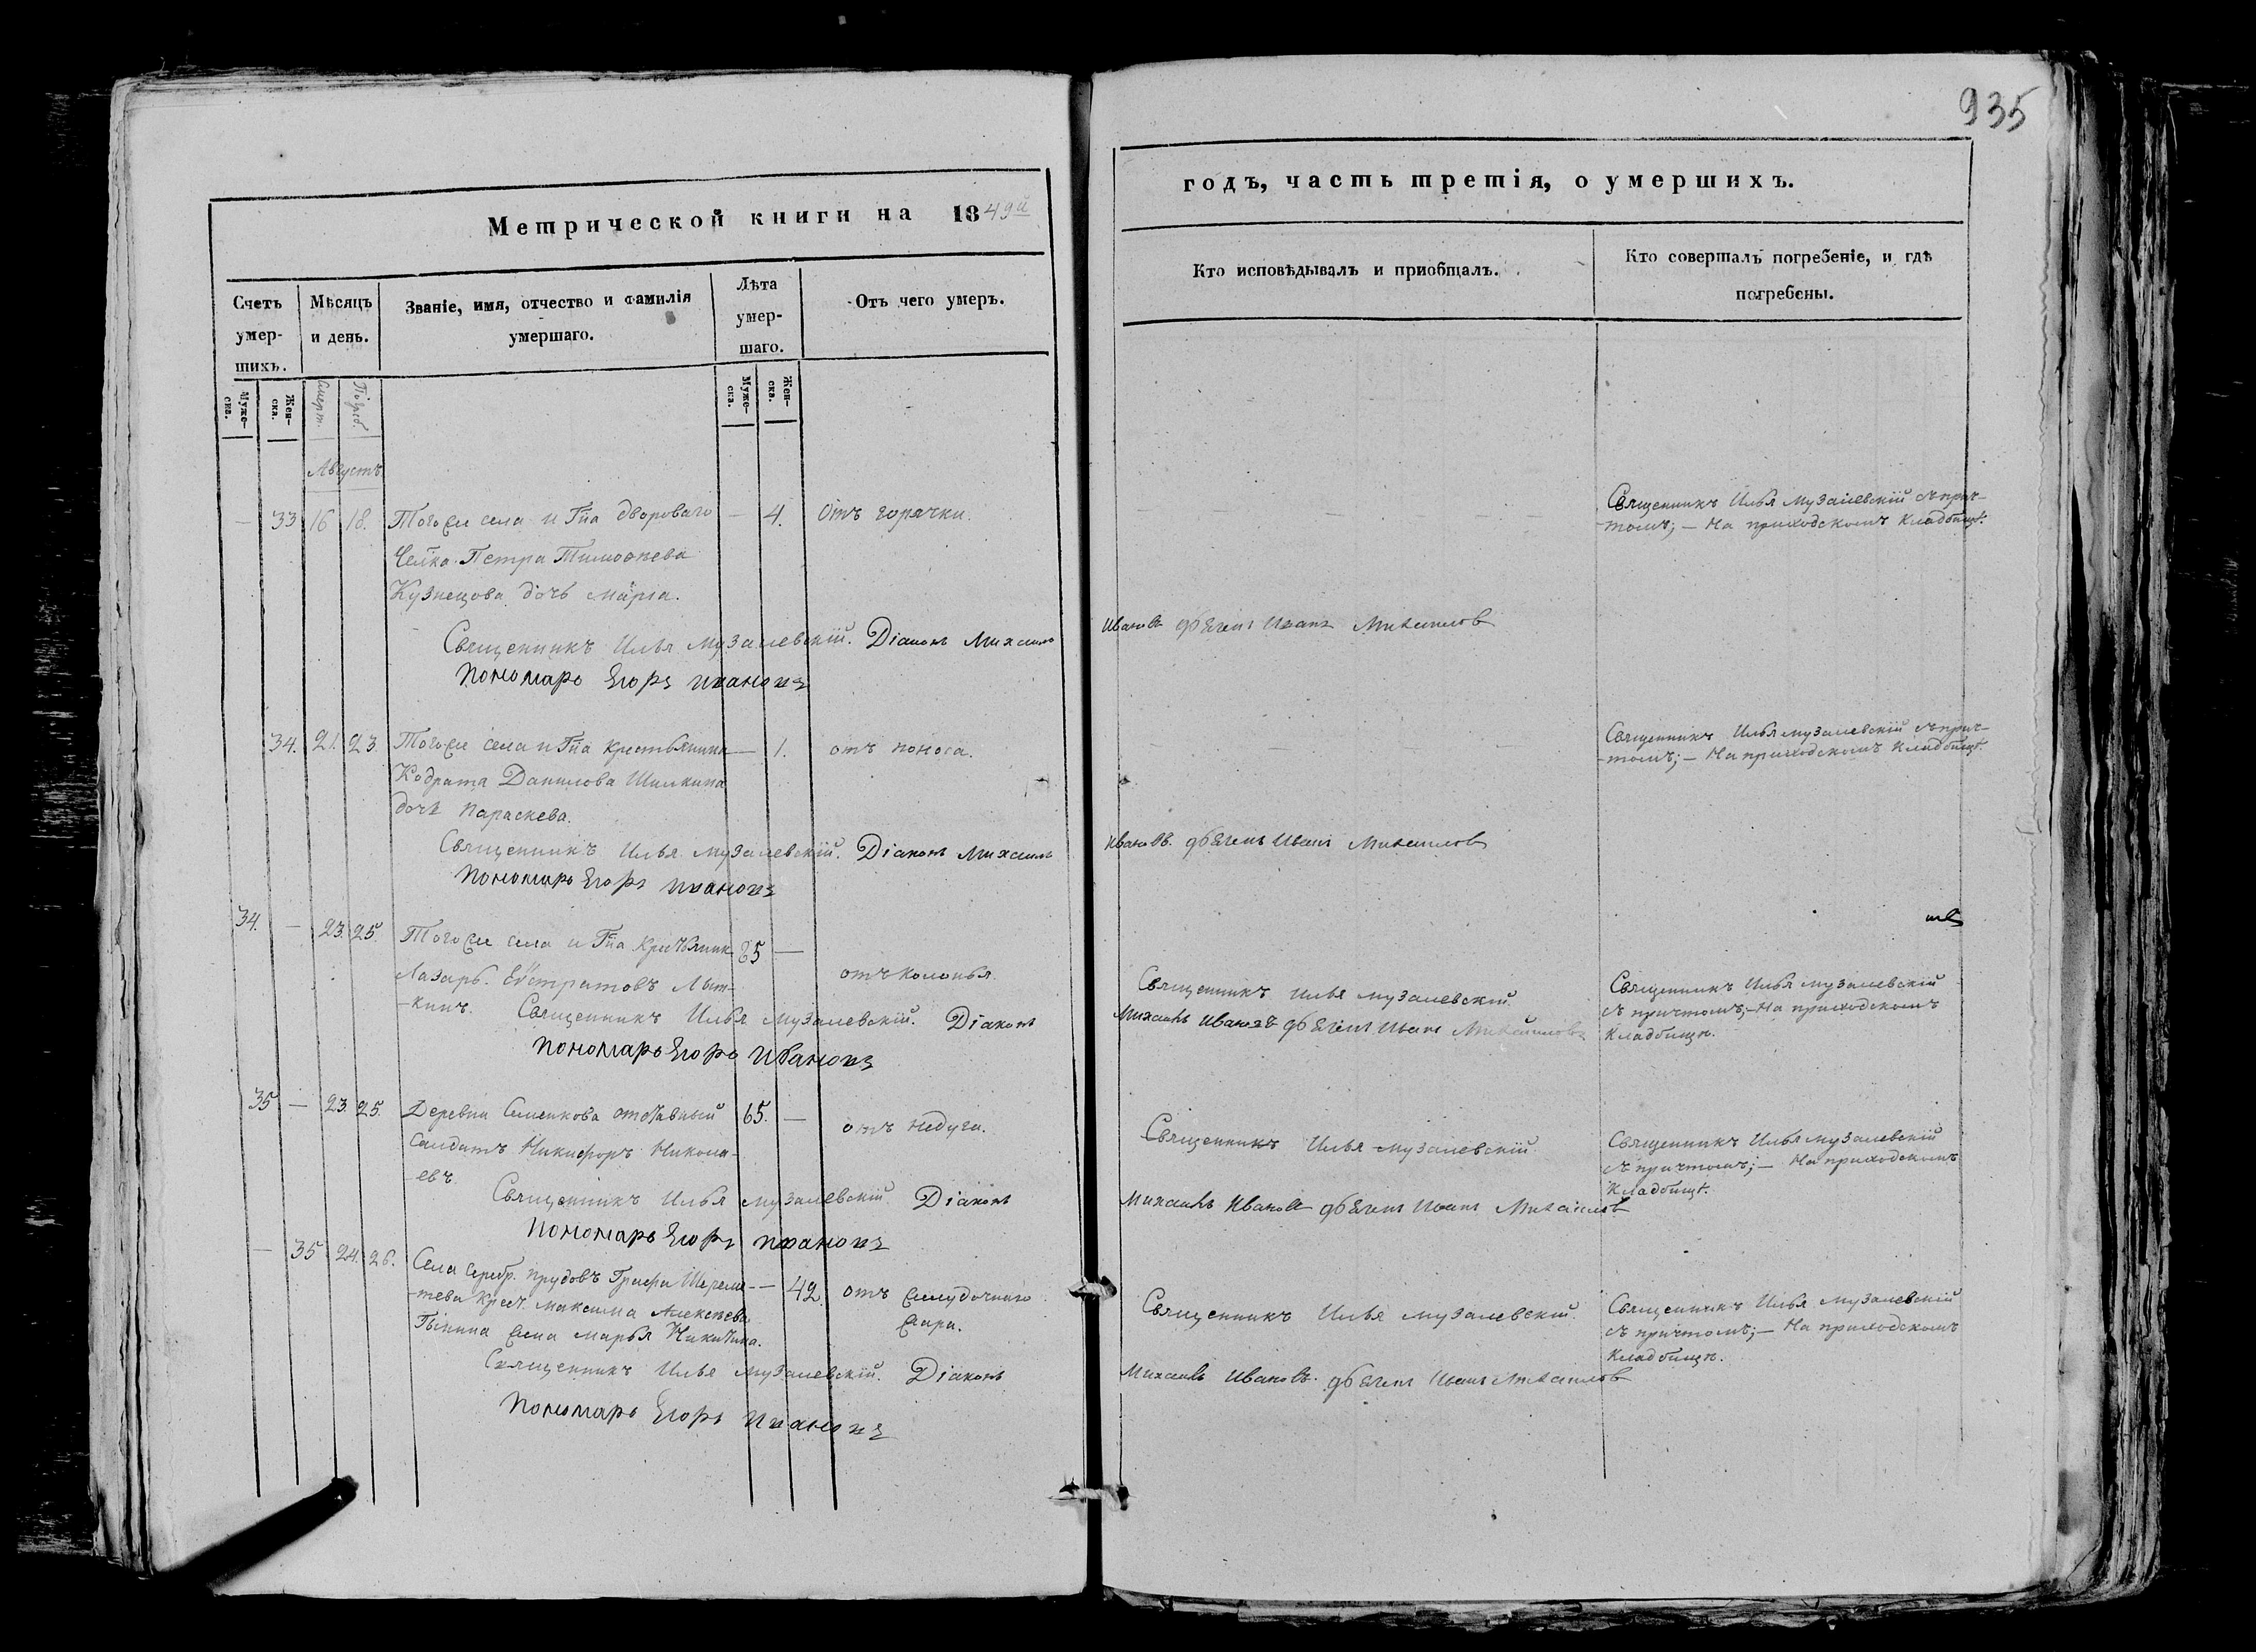 935
Метрической книги на 1849й
годъ, часть третія, о умершихъ.
Счетъ умер-шихъ.
Мѣсяцъ и день.
Званіе, имя, отчество и фамилія умершаго.
Лѣта умер-шаго.
Отъ чего умеръ.
Кто исповѣдывалъ и приобщалъ.
Кто совершалъ погребеніе, и гдѣ погребены.
Муже-ска.
Жен-ска.
Смерт.
Погреб.
Муже-ска.
Жен-ска.
Августъ
— 33 16 18. Тогоже села и Гна двороваго — 4. Отъ горячки.
Челка Петра Тимофѣева
Кузнецова дочь Марiа.
Священникъ Илья Музалевскій с прич-
-томъ; — На приходскомъ кладбищѣ.
Священникъ Илья Музалевскій. Діаконъ Михаилъ Ивановъ Иванъ Михаиловъ
Пономарь Егоръ Ивановъ
34. 21. 23. Тогоже села и Гна крестьянина — 1. отъ поноса.
Кодрата Данилова Шилкина
дочь Параскева.
Священникъ Илья Музалевскій с прич-
-томъ; — На приходскомъ кладбищѣ.
Священникъ Илья Музалевскій. Діаконъ Михаилъ Ивановъ. Иванъ Михаиловъ
Пономарь Егоръ Ивановъ
34. — 23. 25. Тогоже села и Гна крестьянинъ 85 —
Лазарь Евстратовъ Лыт-
-кинъ.
отъ колотья
Священникъ Илья Музалевскій.
Священникъ Илья Музалевскій
с причтомъ; — На приходскомъ
кладбищѣ.
Священникъ Илья Музалевскій. Діаконъ Михаилъ Ивановъ Иванъ Михаиловъ
Пономарь Егоръ Ивановъ
35 — 23. 25. Деревни Семенкова отставный 65. — отъ недуга.
Салдатъ Никифоръ Никола-
-евъ.
Священникъ Илья Музалевскій
Священникъ Илья Музалевскій
с причтомъ; — На приходскомъ
кладбищѣ.
Священникъ Илья Музалевскій Діаконъ Михаилъ Ивановъ Иванъ Михаиловъ
Пономарь Егоръ Ивановъ
— 35 24. 26. Села Серебр. прудовъ Графа Шереме- — 42. отъ желудочнаго
-тева крест. Максима Алексѣева жара.
жена Марья Никитина.
Священникъ Илья Музалевскій.
Священникъ Илья Музалевскій
с причтомъ; — На приходскомъ
кладбищѣ.
Священникъ Илья Музалевскій. Діаконъ Михаилъ Ивановъ. Иванъ Михаиловъ
Пономарь Егоръ Ивановъ